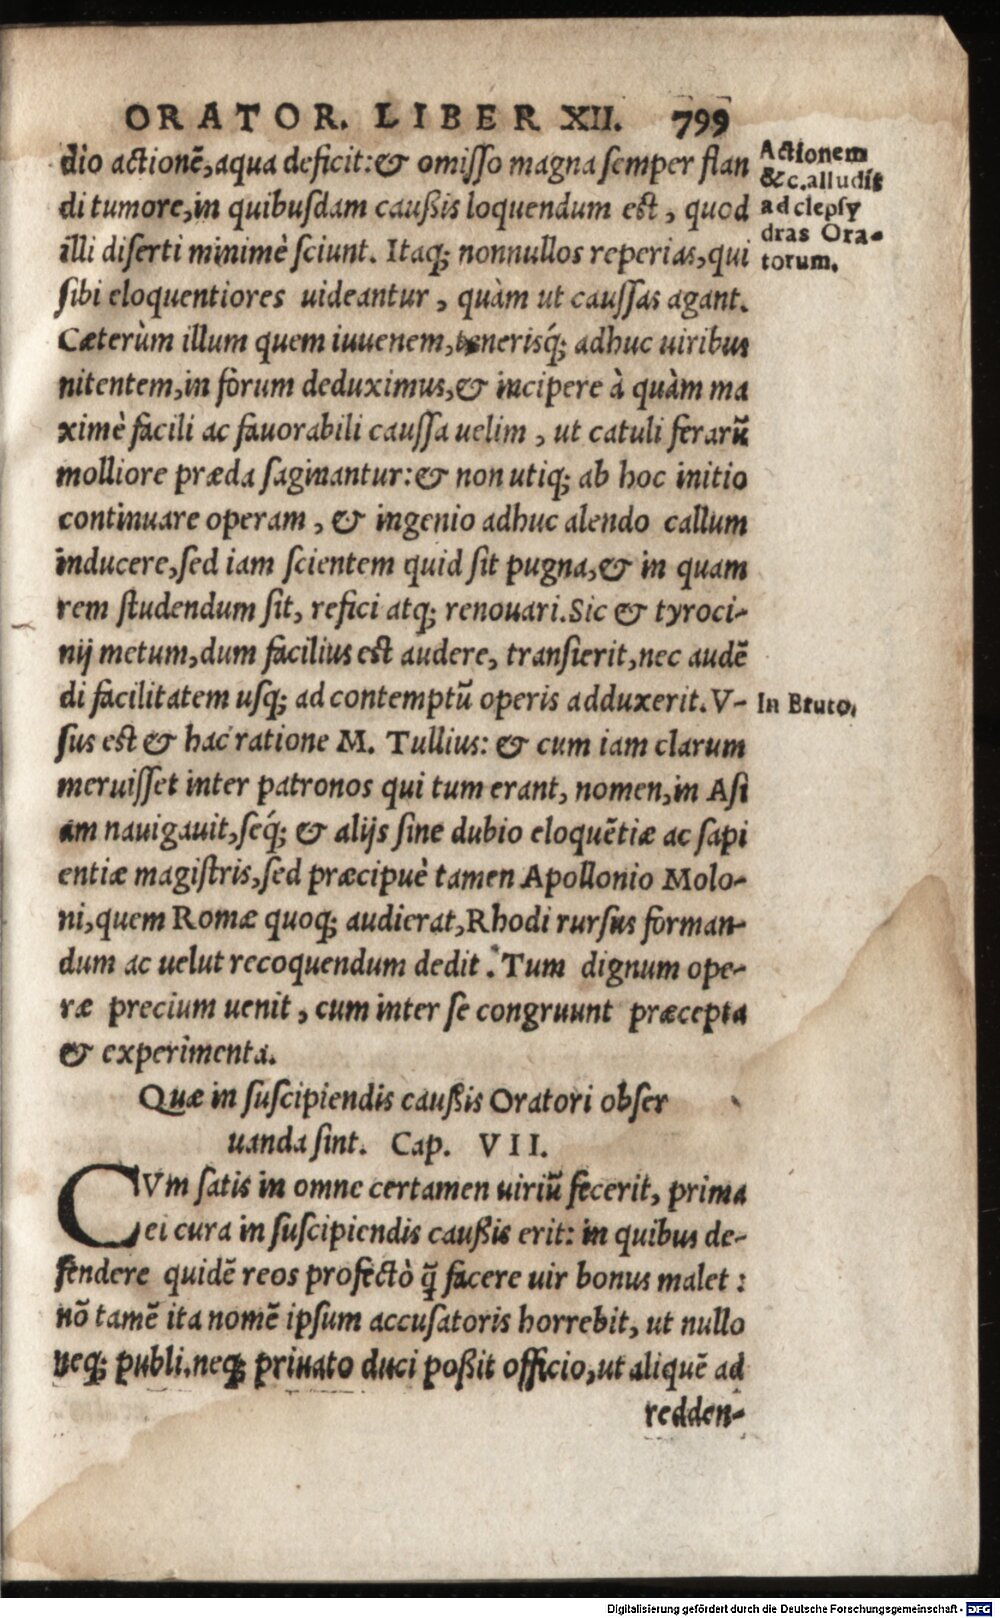 ORATOR. LIBER XII. 799
dio actionē, aqua deficit: & omisso magna semper flan
di tumore, in quibusdam caußis loquendum est, quod
illi diserti minimè sciunt. Itaq; nonnullos reperias, qui
sibi eloquentiores uideantur, quàm ut caussas agant.
Cæterùm illum quem iuuenem, tenerisq́; adhuc uiribus
nitentem, in forum deduximus, & incipere à quàm ma
ximè facili ac fauorabili caussa uelim, ut catuli ferarũ
molliore præda saginantur: & non utiq; ab hoc initio
continuare operam, & ingenio adhuc alendo callum
inducere, sed iam scientem quid sit pugna, & in quam
rem studendum sit, refici atq; renouari. Sic & tyroci-
nij metum, dum facilius est audere, transierit, nec audē
di facilitatem usq; ad contemptũ operis adduxerit. V-
sus est & hac ratione M. Tullius: & cum iam clarum
meruisset inter patronos qui tum erant, nomen, in Asi
am nauigauit, seq́; & alijs sine dubio eloquētiæ ac sapi
entiæ magistris, sed præcipuè tamen Apollonio Molo-
ni, quem Romæ quoq; audierat, Rhodi rursus forman-
dum ac uelut recoquendum dedit. Tum dignum ope-
ræ precium uenit, cum inter se congruunt præcepta
& experimenta.
Quæ in suscipiendis caußis Oratori obser
uanda sint. Cap. VII.
CVm satis in omne certamen uiriũ fecerit, prima
ei cura in suscipiendis caußis erit: in quibus de-
fendere quidē reos profectò q̃ facere uir bonus malet:
nō tamē ita nomē ipsum accusatoris horrebit, ut nullo
neq; publi. neq; priuato duci poßit officio, ut aliquē ad
redden-
Actionem
&c. alludit
ad clepsy
dras Ora-
torum.
In Bruto.
Digitalisierung gefördert durch die Deutsche Forschungsgemeinschaft - DFG